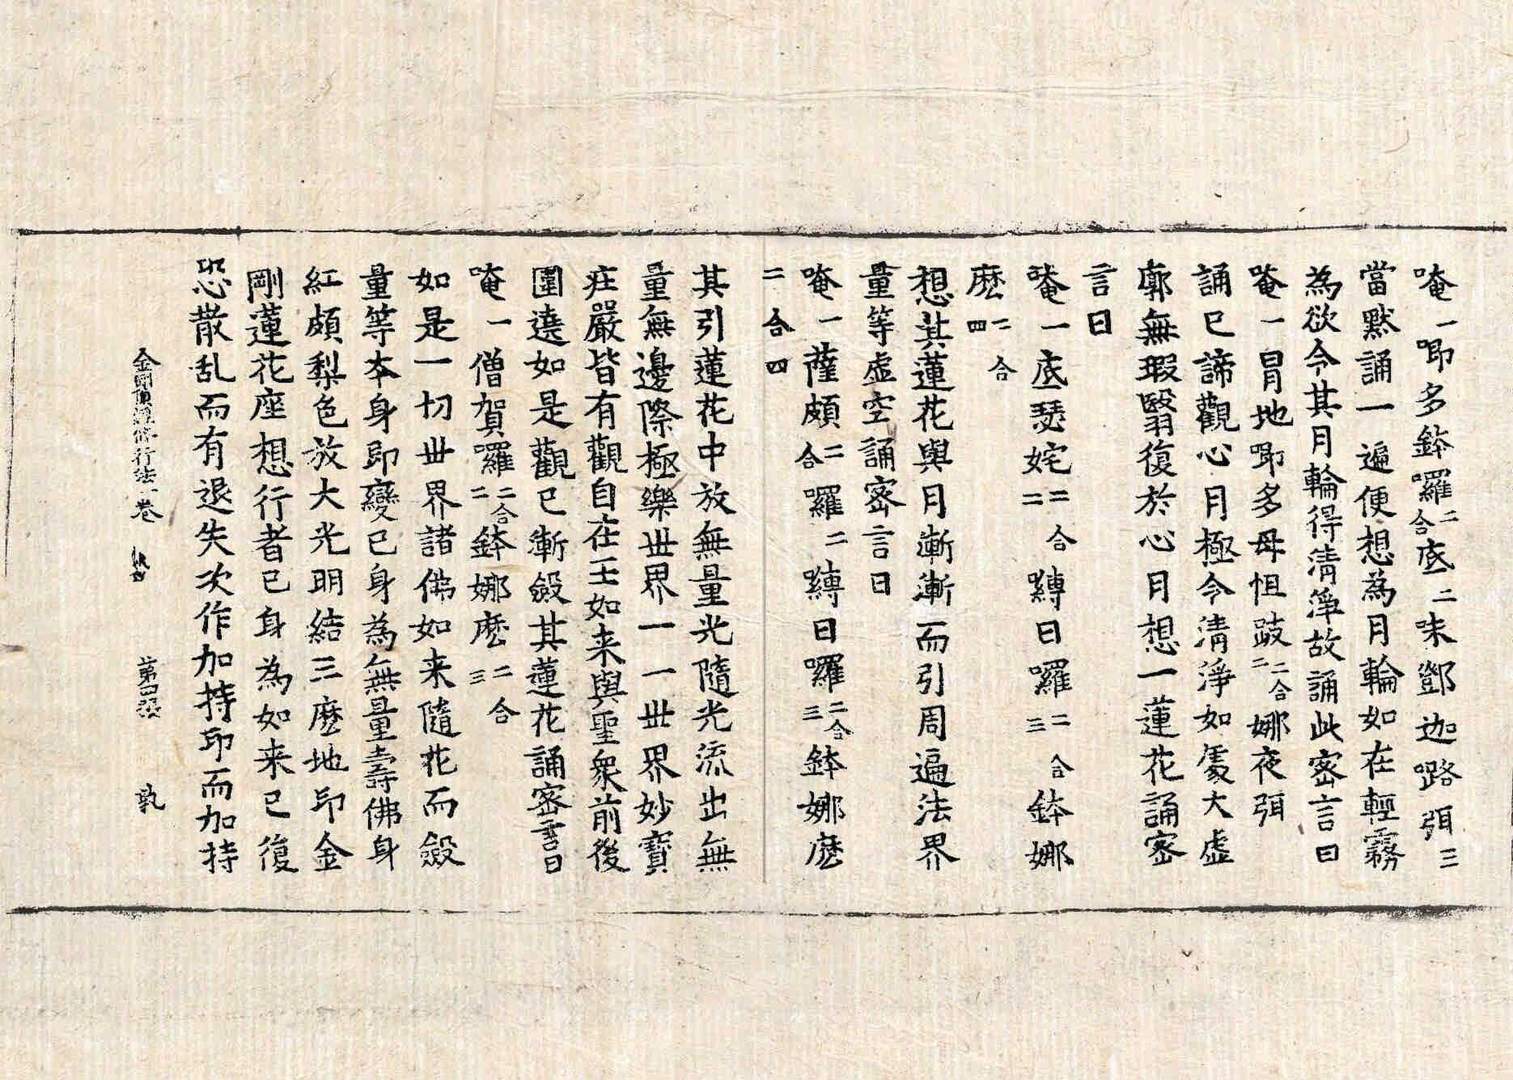 唵一㖡多鉢囉二合底二味鄧迦𡀔弭三
當默誦一遍便想為月輪如在輕霧
為欲令其月輪得清淨故誦此密言曰
唵一冒地㖡多母怛跛二合二娜夜弭
誦已諦觀心月極令清淨如處大虛
廓無瑕翳復於心月想一蓮花誦密
言曰
唵一底瑟姹二合二縛曰囉二合三鉢娜
麽二合四
想其蓮花與月漸漸而引周遍法界
量等虛空誦密言曰
唵一薩頗二合囉二縛曰囉二合三鉢娜麽
二合四
其引蓮花中放無量光隨光流出無
量無邊際極樂丗界一一丗界妙寶
疘嚴皆有觀自在王如来與聖衆前後
圍遶如是觀已漸斂其蓮花誦密言曰
唵一僧賀囉二合二鉢娜麽二合三
如是一切丗界諸佛如来隨花而斂
量等本身即變已身為無量壽佛身
紅頗梨色放大光明結三麽地印金
剛蓮花座想行者已身為如来已復
恐散乱而有退失次作加持印而加持
金剛頂經修行法一卷 第四張 執